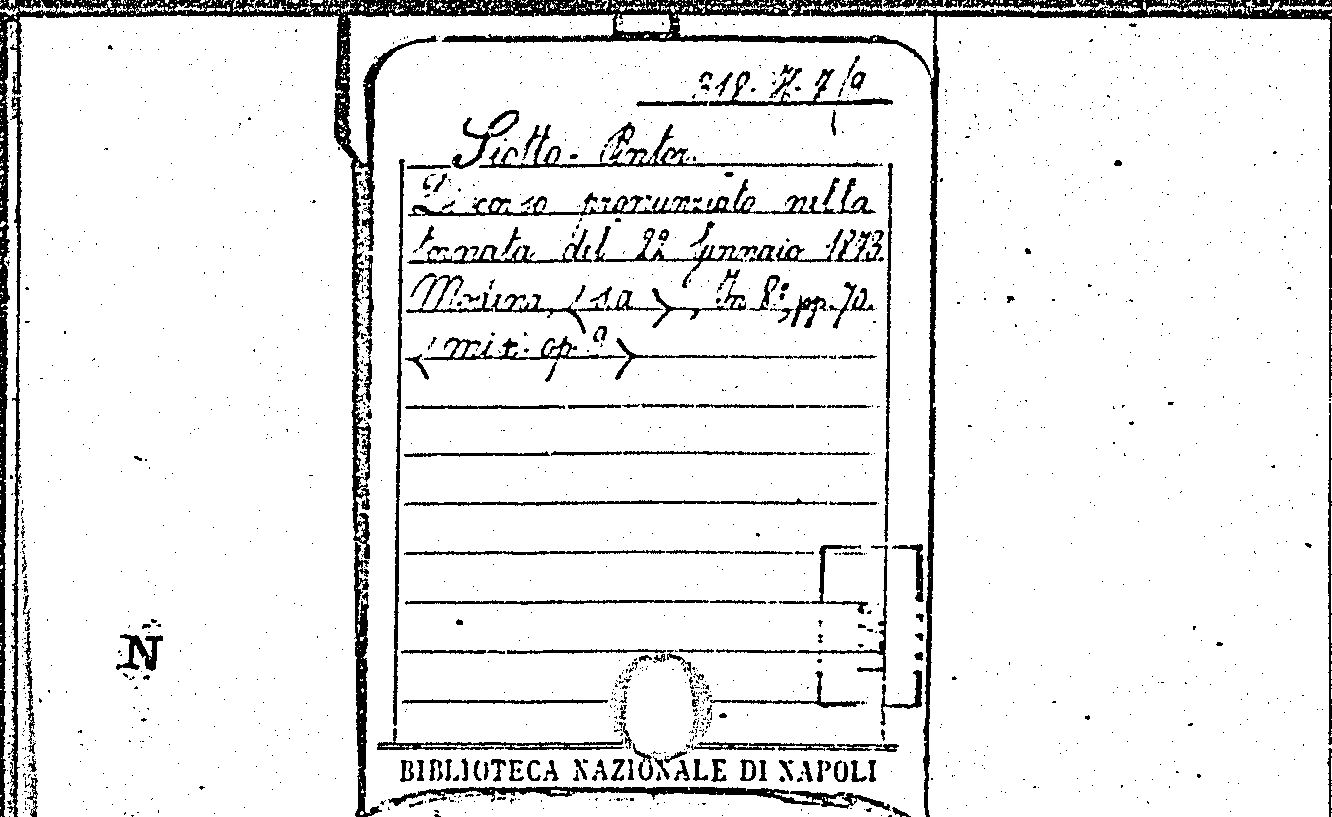 318. H. 7/9
Siotto - Pintor.
Discorso pronunziato nella
tornata del 22 Gennaio 1873
Modena, (s.a), In 8°, pp. 70.
(mis. op.)
N
BIBLIOTECA NAZIONALE DI NAPOLI